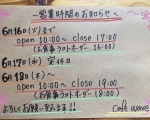 〜営業時間のお知らせ〜
6月16(火)まで
open 10:00〜 close 17:00
(お食事ラストオーダー 16:00)
6月17日(水) 定休日
6月18(木)〜
open 10:00〜 close 19:00
(お食事ラストオーダー 18:00)
よろしくお願い致します!!
cafe wave